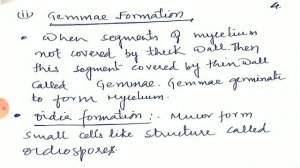 (ii) Gemmae Formation 4
• When segments of mycelium
not covered by thick wall. Then
this segment covered by thin wall
called Gemmae. Gemmae germinate
to form Mycelium.
• Oidia formation :- Mucor form
small cells like structure called
Oidiospores.